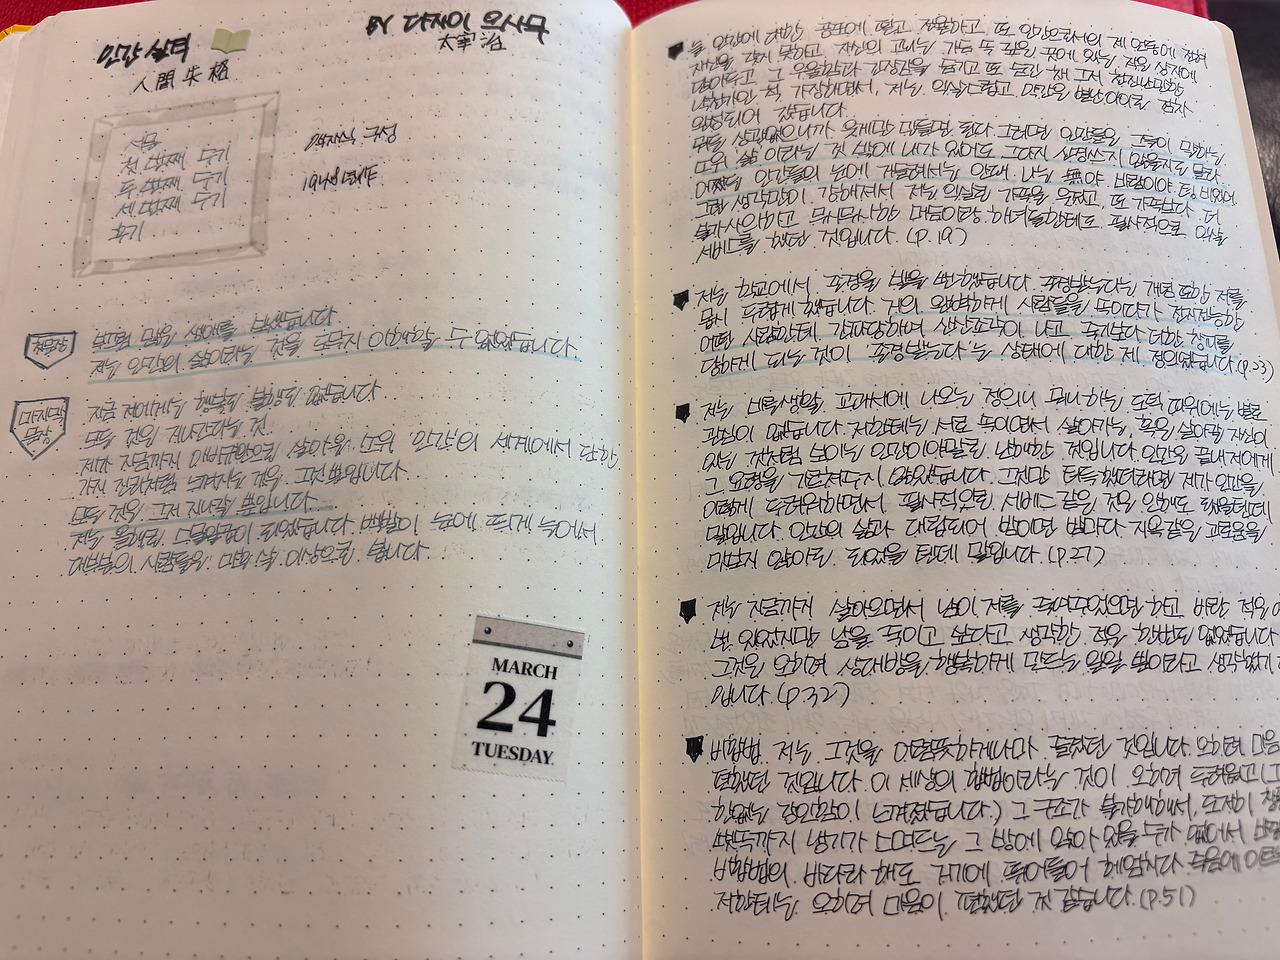 인간 실격
人間失格
BY 다자이 오사무
太宰治
서문
첫 번째 수기
두 번째 수기
세 번째 수기
후기
액자식 구성
1948년作
첫문장
부끄럼 많은 생애를 보냈습니다.
저는 인간의 삶이라는 것을 도무지 이해할 수 없었습니다.
마지막 문장
지금 저에게는 행복도 불행도 없습니다.
모든 것은 지나간다는 것.
제가 지금까지 아비규환으로 살아온 소위 '인간'의 세계에서 단 한
가지 진리처럼 느껴지는 것은 그것뿐입니다.
모든 것은 그저 지나갈 뿐입니다.
저는 올해로 스물일곱이 되었습니다. 백발이 눈에 띄게 늘어서
대부분의 사람들은 마흔 살 이상으로 봅니다.
MARCH
24
TUESDAY
늘 인간에 대한 공포에 떨고 전율하고, 또 인간으로서의 제 언동에 전혀
자신을 갖지 못하고, 자신의 고뇌는 가슴 속 깊은 곳에 있는 작은 상자에
담아두고 그 우울함과 긴장감을 숨기고 또 숨긴 채 그저 천진난만한
낙천가인 척 가장하면서, 저는 익살스럽고 약간은 별난 아이로 점차
완성되어 갔습니다.
뭐든 상관없으니까 웃게만 만들면 된다. 그러면 인간들은 그들이 말하는
소위 '삶'이라는 것 밖에 내가 있어도 그다지 신경쓰지 않을지도 몰라.
어쨌든 인간들의 눈에 거슬려서는 안돼. 나는 無야. 바람이야. 텅 비었어.
그런 생각만이 강해져서 저는 익살로 가족을 웃겼고, 또 가족보다 더
불가사의하고 무시무시한 머슴이랑 하녀들한테도 필사적으로 익살
서비스를 했던 것입니다. (p.19)
저는 학교에서 존경을 받을 뻔 했습니다. 존경받는다는 개념 또한 저를
몹시 두렵게 했습니다. 거의 완벽하게 사람들을 속이다가 전지전능한
어떤 사람한테 간파당하여 산산조각이 나고 죽기보다 더한 창피를
당하게 되는 것이 '존경받는다'는 상태에 대한 제 정의였습니다. (p.23)
저는 바른생활 교과서에 나오는 정의니 뭐니 하는 도덕 따위에는 별로
관심이 없습니다. 저한테는 서로 속이면서 살아가는, 혹은 살아갈 자신이
있는 것처럼 보이는 인간이야말로 난해한 것입니다. 인간은 끝내 저에게
그 요령을 가르쳐주지 않았습니다. 그것만 터득했더라면 제가 인간을
이렇게 두려워하면서 필사적으로 서비스 같은 것은 안해도 됐을텐데
말입니다. 인간의 삶과 대립되어 밤이면 밤마다 지옥같은 괴로움을
맛보지 않아도 되었을 텐데 말입니다. (p.27)
저는 지금까지 살아오면서 남이 저를 죽여주었으면 하고 바란 적은
번 있었지만 남을 죽이고 싶다고 생각한 적은 한번도 없었습니다.
그것은 오히려 상대방을 행복하게 만드는 일일 뿐이라고 생각했기
입니다. (p.32)
비합법. 저는 그것을 어렴풋하게나마 즐겼던 것입니다. 오히려 마음
편했던 것입니다. 이 세상의 합법이라는 것이 오히려 두려웠고 (그
한없는 강인함이 느껴졌습니다.) 그 구조가 불가해해서, 도저히 창문
뼛속까지 냉기가 스며드는 그 방에 앉아 있을 수가 없어서
비합법의 바다라 해도 거기에 뛰어들어 헤엄치다 죽음에
저한테는 오히려 마음이 편했던 것 같습니다. (p.51)